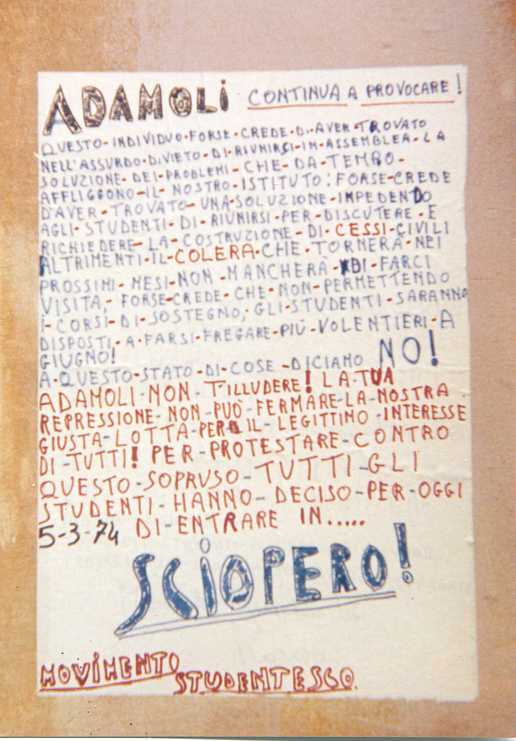 ADAMOLI CONTINUA A PROVOCARE!
QUESTO-INDIVIDUO-FORSE-CREDE-DI-AVER-TROVATO
NELL'ASSURDO-DIVIETO-DI-RIUNIRSI-IN-ASSEMBLEA-LA
SOLUZIONE-DEI-PROBLEMI-CHE-DA-TEMPO-
AFFLIGGONO-IL-NOSTRO-ISTITUTO: FORSE-CREDE
D'AVER-TROVATO-UNA-SOLUZIONE-IMPEDENDO
AGLI-STUDENTI-DI-RIUNIRSI-PER-DISCUTERE-E
RICHIEDERE-LA-COSTRUZIONE-DI-CESSI-CIVILI
ALTRIMENTI-IL-COLERA-CHE-TORNERÀ-NEI
PROSSIMI-MESI-NON-MANCHERÀ-DI-FARCI
VISITA, FORSE-CREDE-CHE-NON-PERMETTENDO
I-CORSI-DI-SOSTEGNO, GLI-STUDENTI-SARANNO
DISPOSTI-A-FARSI-FREGARE-PIÙ-VOLENTIERI-A
GIUGNO!
A-QUESTO-STATO-DI-COSE-DICIAMO NO!
ADAMOLI-NON-T'ILLUDERE! LA-TUA
REPRESSIONE-NON-PUÒ-FERMARE-LA-NOSTRA
GIUSTA-LOTTA-PER IL-LEGITTIMO-INTERESSE
DI-TUTTI! PER-PROTESTARE-CONTRO
QUESTO-SOPRUSO-TUTTI-GLI
STUDENTI-HANNO-DECISO-PER-OGGI
5-3-74 DI-ENTRARE IN.....
SCIOPERO!
MOVIMENTO
STUDENTESCO